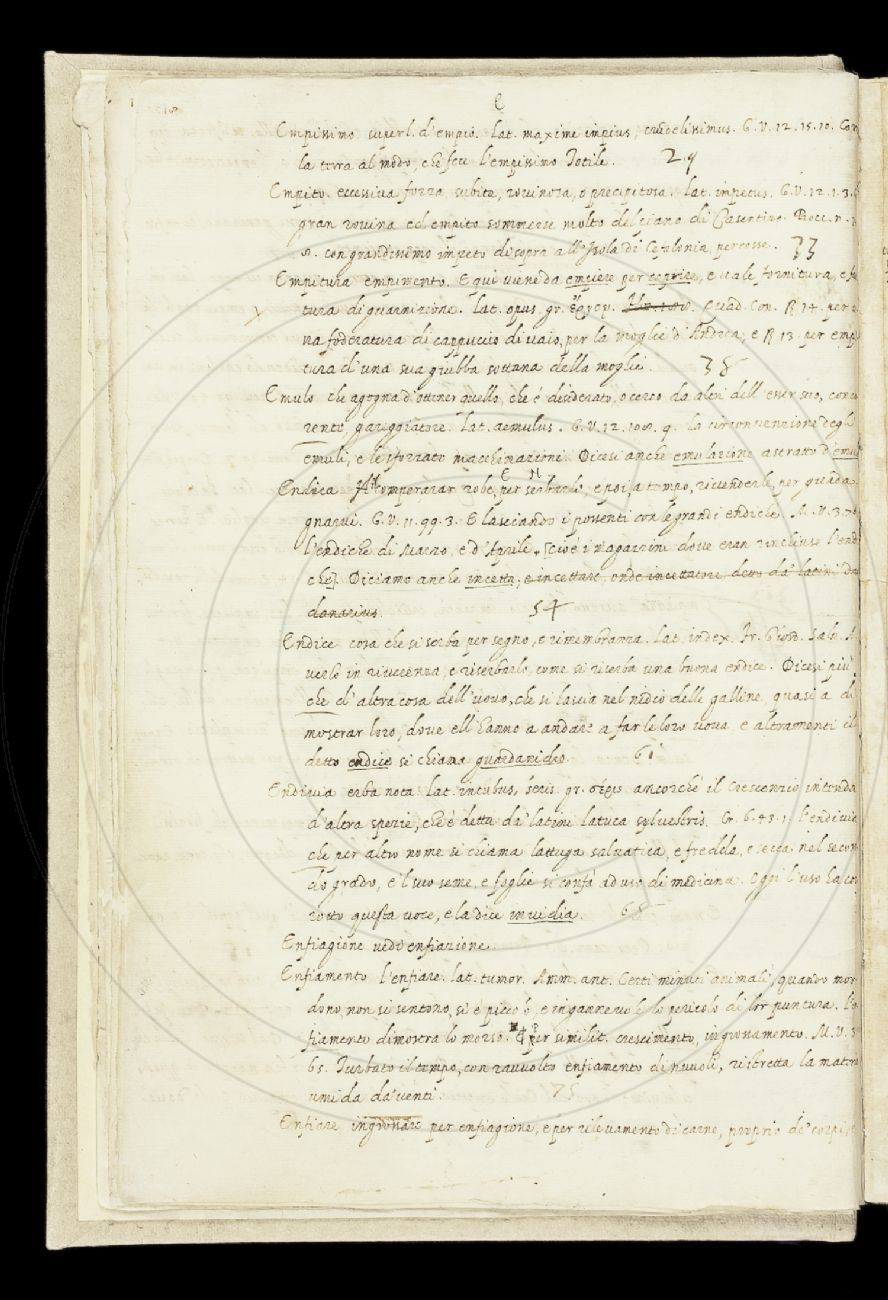 E
Empissimo superl. d'empio. lat. maxime impius, crudelissimus. G.V. 12. 15. 10. Con
la terra al modo, che feo l'empissimo Totile. 29
Empito. eccessiva forza subita, rovinosa, o precipitosa. lat. impetus. G.V. 12. 1. 3.
gran rovina ed empito sommerse molto del piano di Casentino. Bocc. n.
8. con grandissimo impeto di sopra all'Isola di Cefalonia percosse. 33
Empitura empimento. E qui viene da empiere per coprire, e vale fornitura, e
tura di guarnizione. lat. opus, gr. ἔργον. Quad. Con. R 14. per
na foderatura di cappuccio di vaio, per la moglie d'Andrea, e R 13. per empi
tura d'una sua giubba sottana della moglie. 38
Emulo che agogna d'ottener quello, che è desiderato, o cerco da altri dell'esser suo, conco
rente, gareggiatore. lat. aemulus. G.V. 12. 108. 9. la circonvenzione degli
emuli, e le sforzate macchinazioni. Dicesi anche emulazione astratto d'emul
Endica comperarar robe, per serbarle, e poi, a tempo, rivenderle, per guada
gnarvi. G.V. 11. 99. 3. E lasciando i possenti con le grandi endiche M.V. 3.
l'endiche di Marzo, e d'Aprile, [cioè i magazzini dove eran rinchiuse l'end
che]. Diciamo anche incetta, e incettare, onde incettatore detto da' latini da
danarius. 54
Endice cosa che si serba per segno, e rimembranza. lat. index. Fr. Giord. Salv.
verlo in riverenza, e riserbarlo, come si riserba una buona endice. Dicesi più
che d'altra cosa dell'uovo, che si lascia nel nidio delle galline, quasi a di
mostrar loro, dove ell'hanno a andare a far le loro uova, e altramenti il
detto endice si chiama guardanidio. 61
Endivia erba nota. lat. intubus, seris. gr. σέρις. ancorchè il Crescenzio intenda
d'altra spezie, che è detta da' latini latuca sylvestris. Cr. 6. 43. 1. l'endivia
che per altro nome si chiama lattuga salvatica, e fredda, e secca nel secon
do grado, e il suo seme, e foglie si confà ad uso di medicina. Oggi l'uso ha cor
rotto questa voce, e la dice invidia. 68
Enfiagione vedi enfiazione.
Enfiamento l'enfiare. lat. tumor. Amm. ant. Certi minuti animali, quando mor
dono, non si sentono, sì è piccolo, e ingannevole lo pericolo di lor puntura. l'en
fiamento dimostra lo morso. per similit. crescimento, ingrossamento. M.V. 3
65. Turbato il tempo, con ravvolto enfiamento di nuvoli, ristretta la materia
umida da' venti. 75
Enfiare ingrossare per enfiagione, e per rilevamento di carne, proprio de' corpi